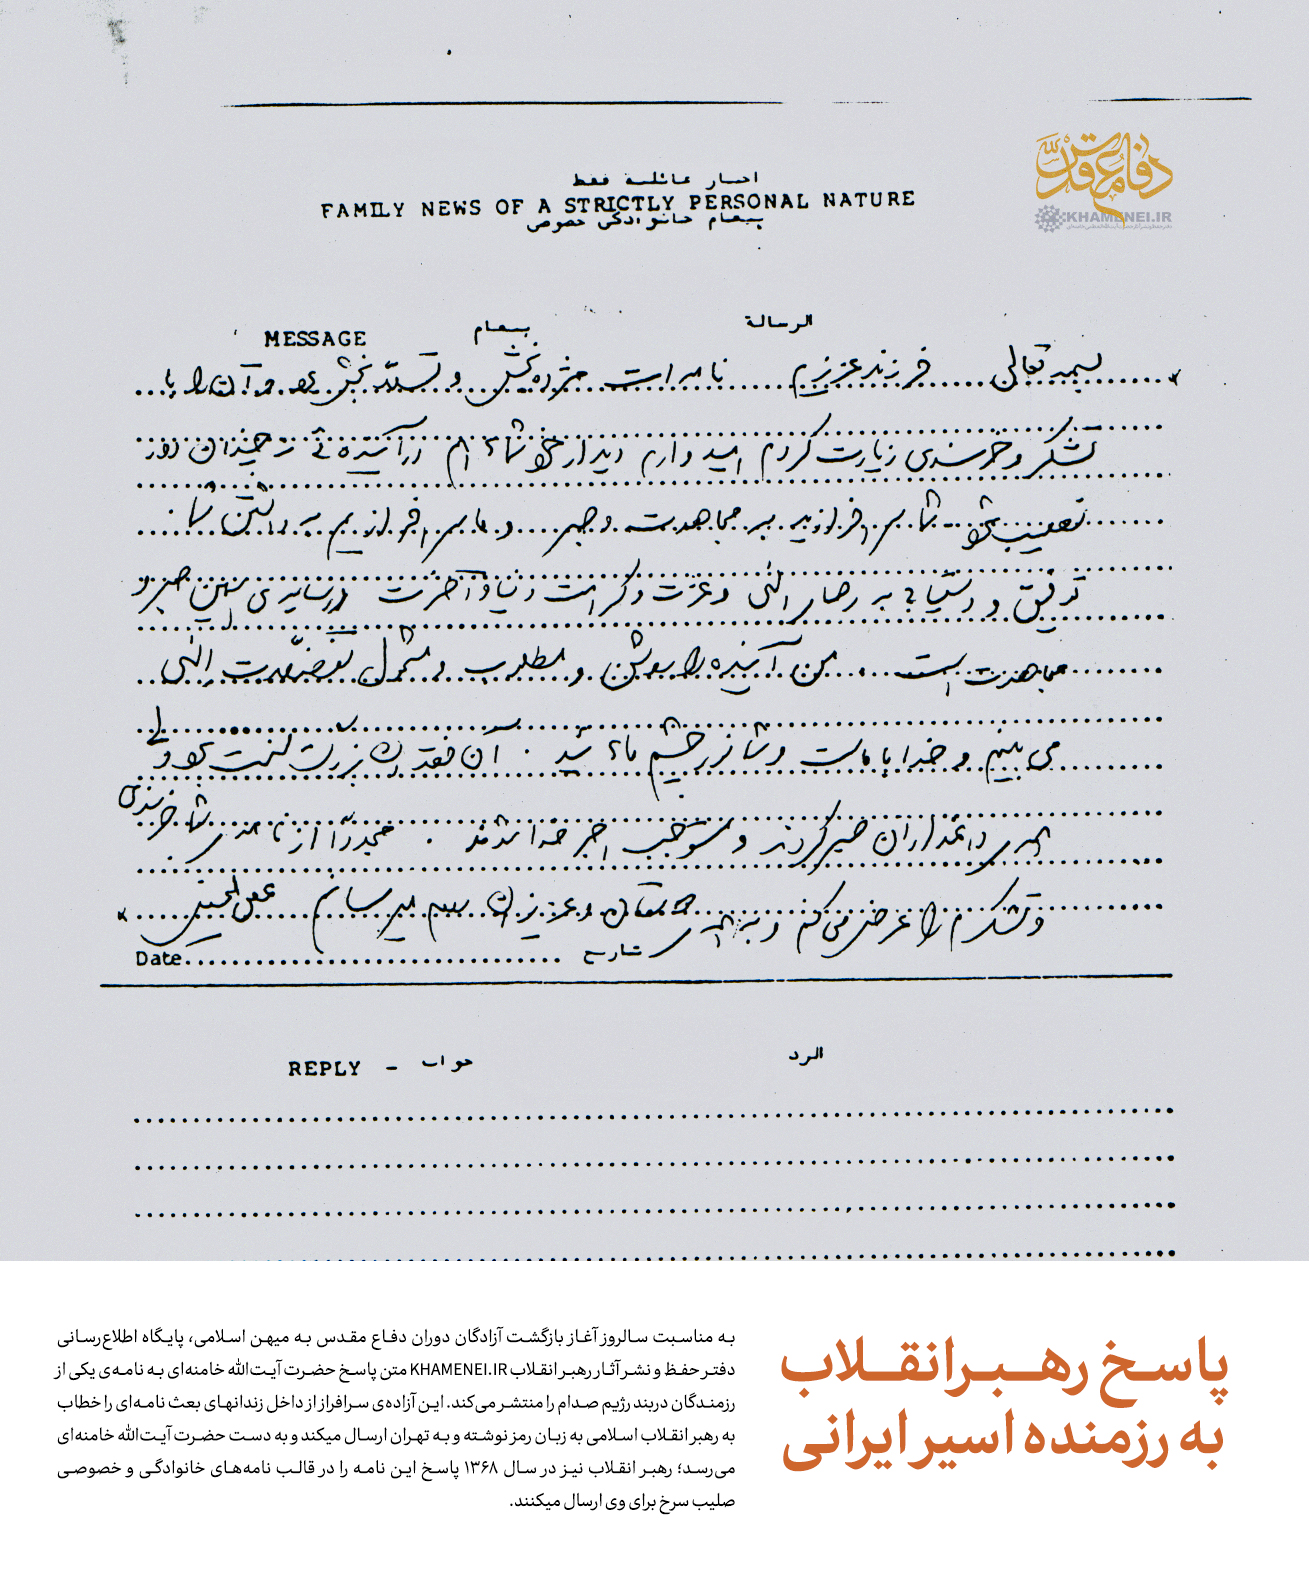 دفاع مقدس
KHAMENEI.IR
اخبار عائلية فقط
FAMILY NEWS OF A STRICTLY PERSONAL NATURE
پیغام خانوادگی خصوصی
الرسالة
پیغام
MESSAGE
بسمه تعالی فرزند عزیزم نامه‌ات مژده‌بخش و تسلّابخش بود و آن را با
تشکر و خرسندی زیارت کردم امیدوارم دیدار خود شما هم در آینده‌ئی نه چندان دور
نصیب شود شما سرافرازید به مجاهدت و صبر و ما سرافرازیم به داشتن شما.
توفیق و دستیابی به رضای الهی و عزت و کرامت دنیا و آخرت در سایه‌ی همین صبر و
مجاهدت است من آینده را روشن و مطلوب و مشمول تفضّلات الهی
می‌بینم و خدا با ماست و شما نور چشم مائید. آن فقدان بزرگ سخت بود ولی
همه‌ی داغداران صبر کردند و مستوجب اجر خدا شدند. مجدداً از نامه‌ی شما خرسندی
و تشکرم را عرض می‌کنم و به همه‌ی و عزیزان سلام میرسانم
Date
تاریخ
الرد
جواب
REPLY -
پاسخ رهبر انقلاب
به رزمنده اسیر ایرانی
به مناسبت سالروز آغاز بازگشت آزادگان دوران دفاع مقدس به میهن اسلامی، پایگاه اطلاع‌رسانی
دفتر حفظ و نشر آثار رهبر انقلاب KHAMENEI.IR متن پاسخ حضرت آیت‌الله خامنه‌ای به نامه‌ی یکی از
رزمندگان دربند رژیم صدام را منتشر می‌کند. این آزاده‌ی سرافراز از داخل زندانهای بعث نامه‌ای را خطاب
به رهبر انقلاب اسلامی به زبان رمز نوشته و به تهران ارسال میکند و به دست حضرت آیت‌الله خامنه‌ای
می‌رسد؛ رهبر انقلاب نیز در سال ۱۳۶۸ پاسخ این نامه را در قالب نامه‌های خانوادگی و خصوصی
صلیب سرخ برای وی ارسال میکنند.